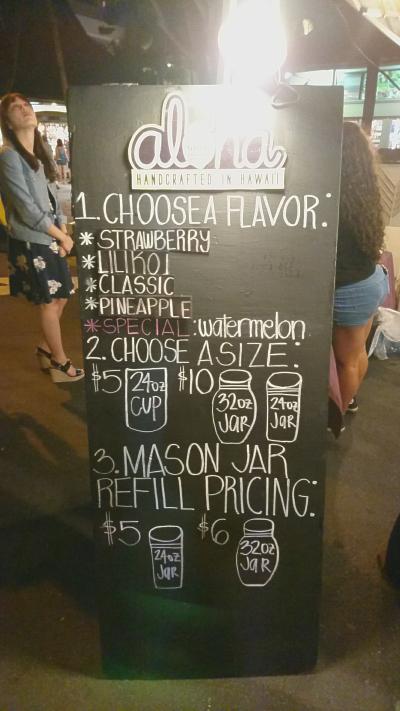 aloha
HANDCRAFTED IN HAWAII
1. CHOOSE A FLAVOR:
* STRAWBERRY
* LILIKOI
* CLASSIC
* PINEAPPLE
* SPECIAL: watermelon
2. CHOOSE A SIZE:
$5 24oz CUP $10 32oz JAR 24oz JAR
3. MASON JAR
REFILL PRICING:
$5 24oz JAR $6 32oz JAR